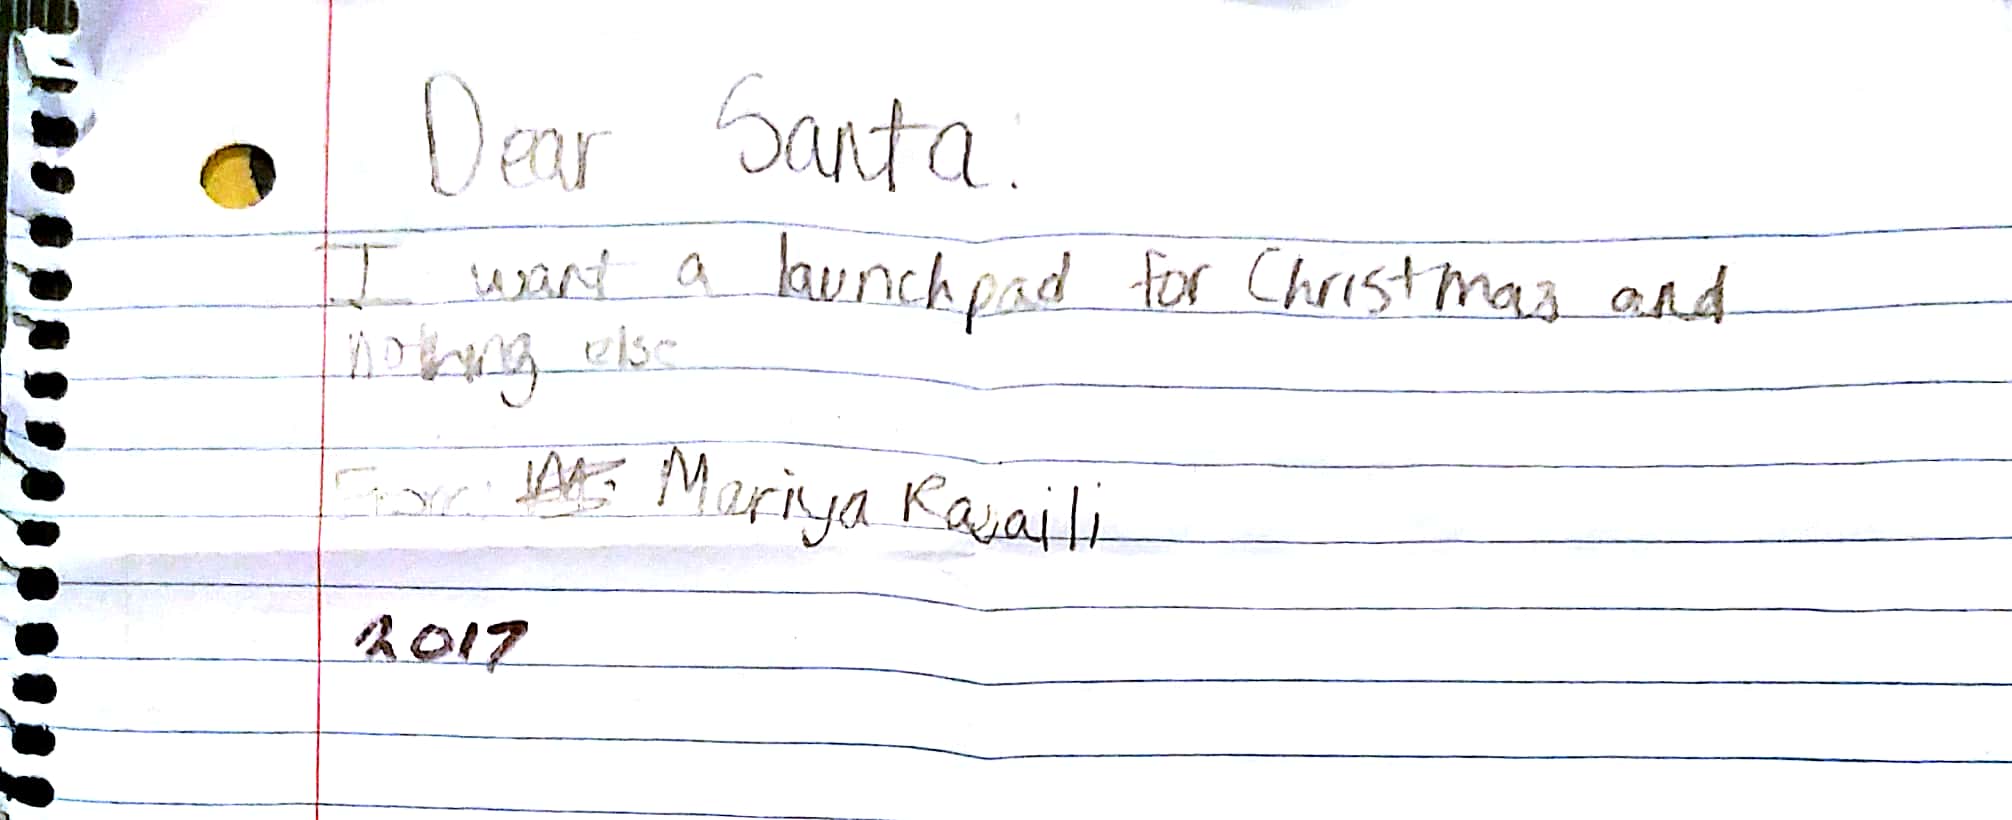 Dear Santa:
I want a launchpad for Christmas and
nothing else
From: Mariya
2017